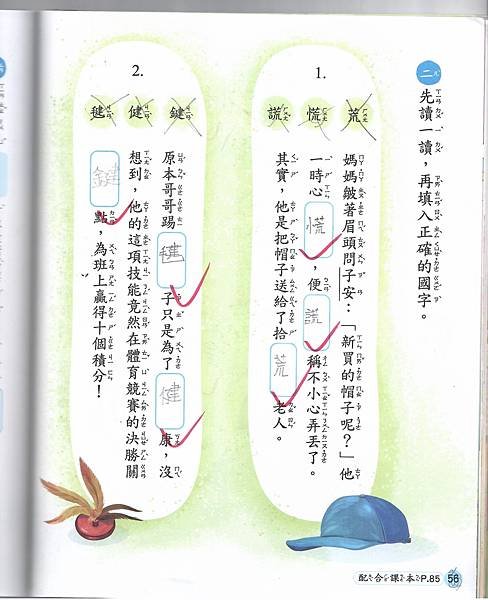 二 先讀一讀，再填入正確的國字。
1.
荒 慌 謊
媽媽皺著眉頭問子安：「新買的帽子呢？」他
一時心慌，便謊稱不小心弄丟了。
其實，他是把帽子送給了拾荒老人。
2.
鍵 健 毽
原本哥哥踢毽子只是為了健康，沒
想到，他的這項技能竟然在體育競賽的決勝關
鍵點，為班上贏得十個積分！
配合課本P.85 56